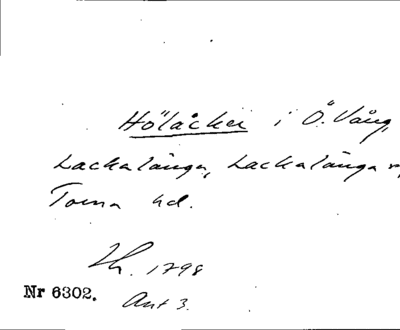 Hölåcker i Ö. Vång,
Lackalänga, Lackalänga
Torna hd.
Lh. 1798
Nr 6302. Akt 3.